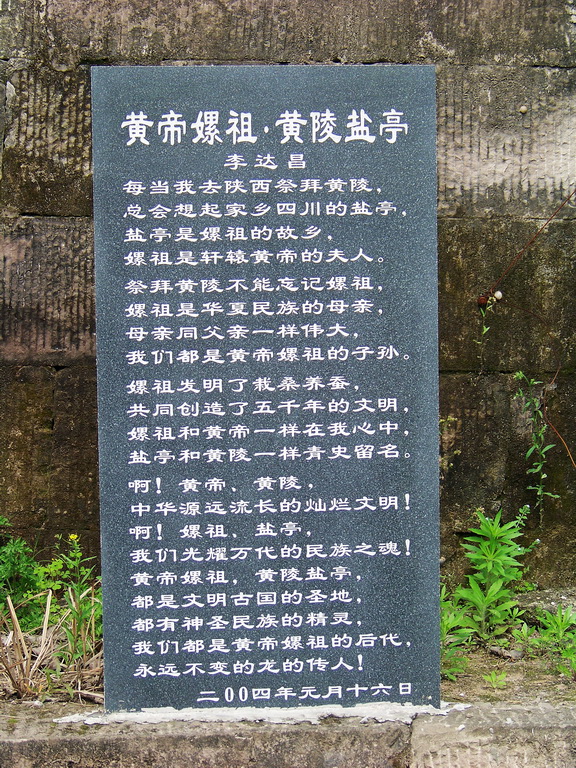 黄帝嫘祖·黄陵盐亭
李达昌
每当我去陕西祭拜黄陵，
总会想起家乡四川的盐亭，
盐亭是嫘祖的故乡，
嫘祖是轩辕黄帝的夫人。
祭拜黄陵不能忘记嫘祖，
嫘祖是华夏民族的母亲，
母亲同父亲一样伟大，
我们都是黄帝嫘祖的子孙。
嫘祖发明了栽桑养蚕，
共同创造了五千年的文明，
嫘祖和黄帝一样在我心中，
盐亭和黄陵一样青史留名。
啊！黄帝、黄陵，
中华源远流长的灿烂文明！
啊！嫘祖、盐亭，
我们光耀万代的民族之魂！
黄帝嫘祖，黄陵盐亭，
都是文明古国的圣地，
都有神圣民族的精灵，
我们都是黄帝嫘祖的后代，
永远不变的龙的传人！
二00四年元月十六日